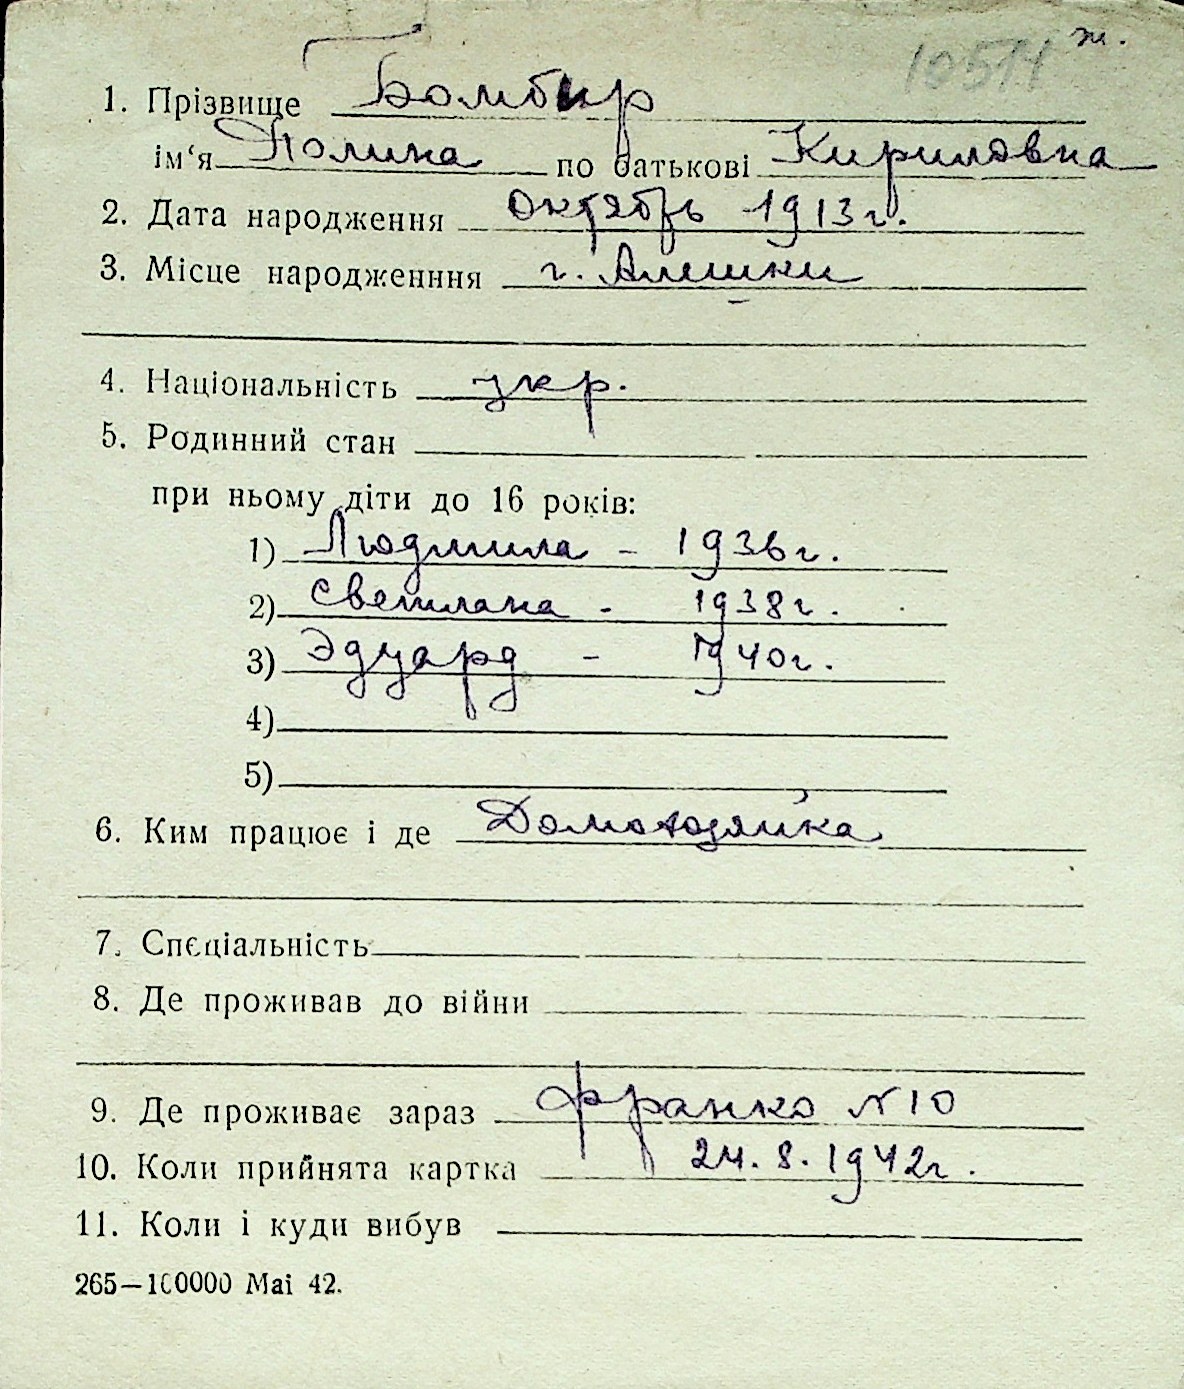 10514 ж.
1. Прізвище Бомбир
ім‘я Полина по батькові Кириловна
2. Дата народження октябрь 1913 г.
3. Місце народженння г. Алешки
4. Національність укр.
5. Родинний стан
при ньому діти до 16 років:
1) Людмила - 1936 г.
2) Светлана - 1938 г.
3) Эдуард - 1940 г.
4)
5)
6. Ким працює і де Домохозяйка
7. Спєціальність
8. Де проживав до війни
9. Де проживає зараз Франко № 10
10. Коли прийнята картка 24. 8. 1942 г.
11. Коли і куди вибув
265—100000 Mai 42.